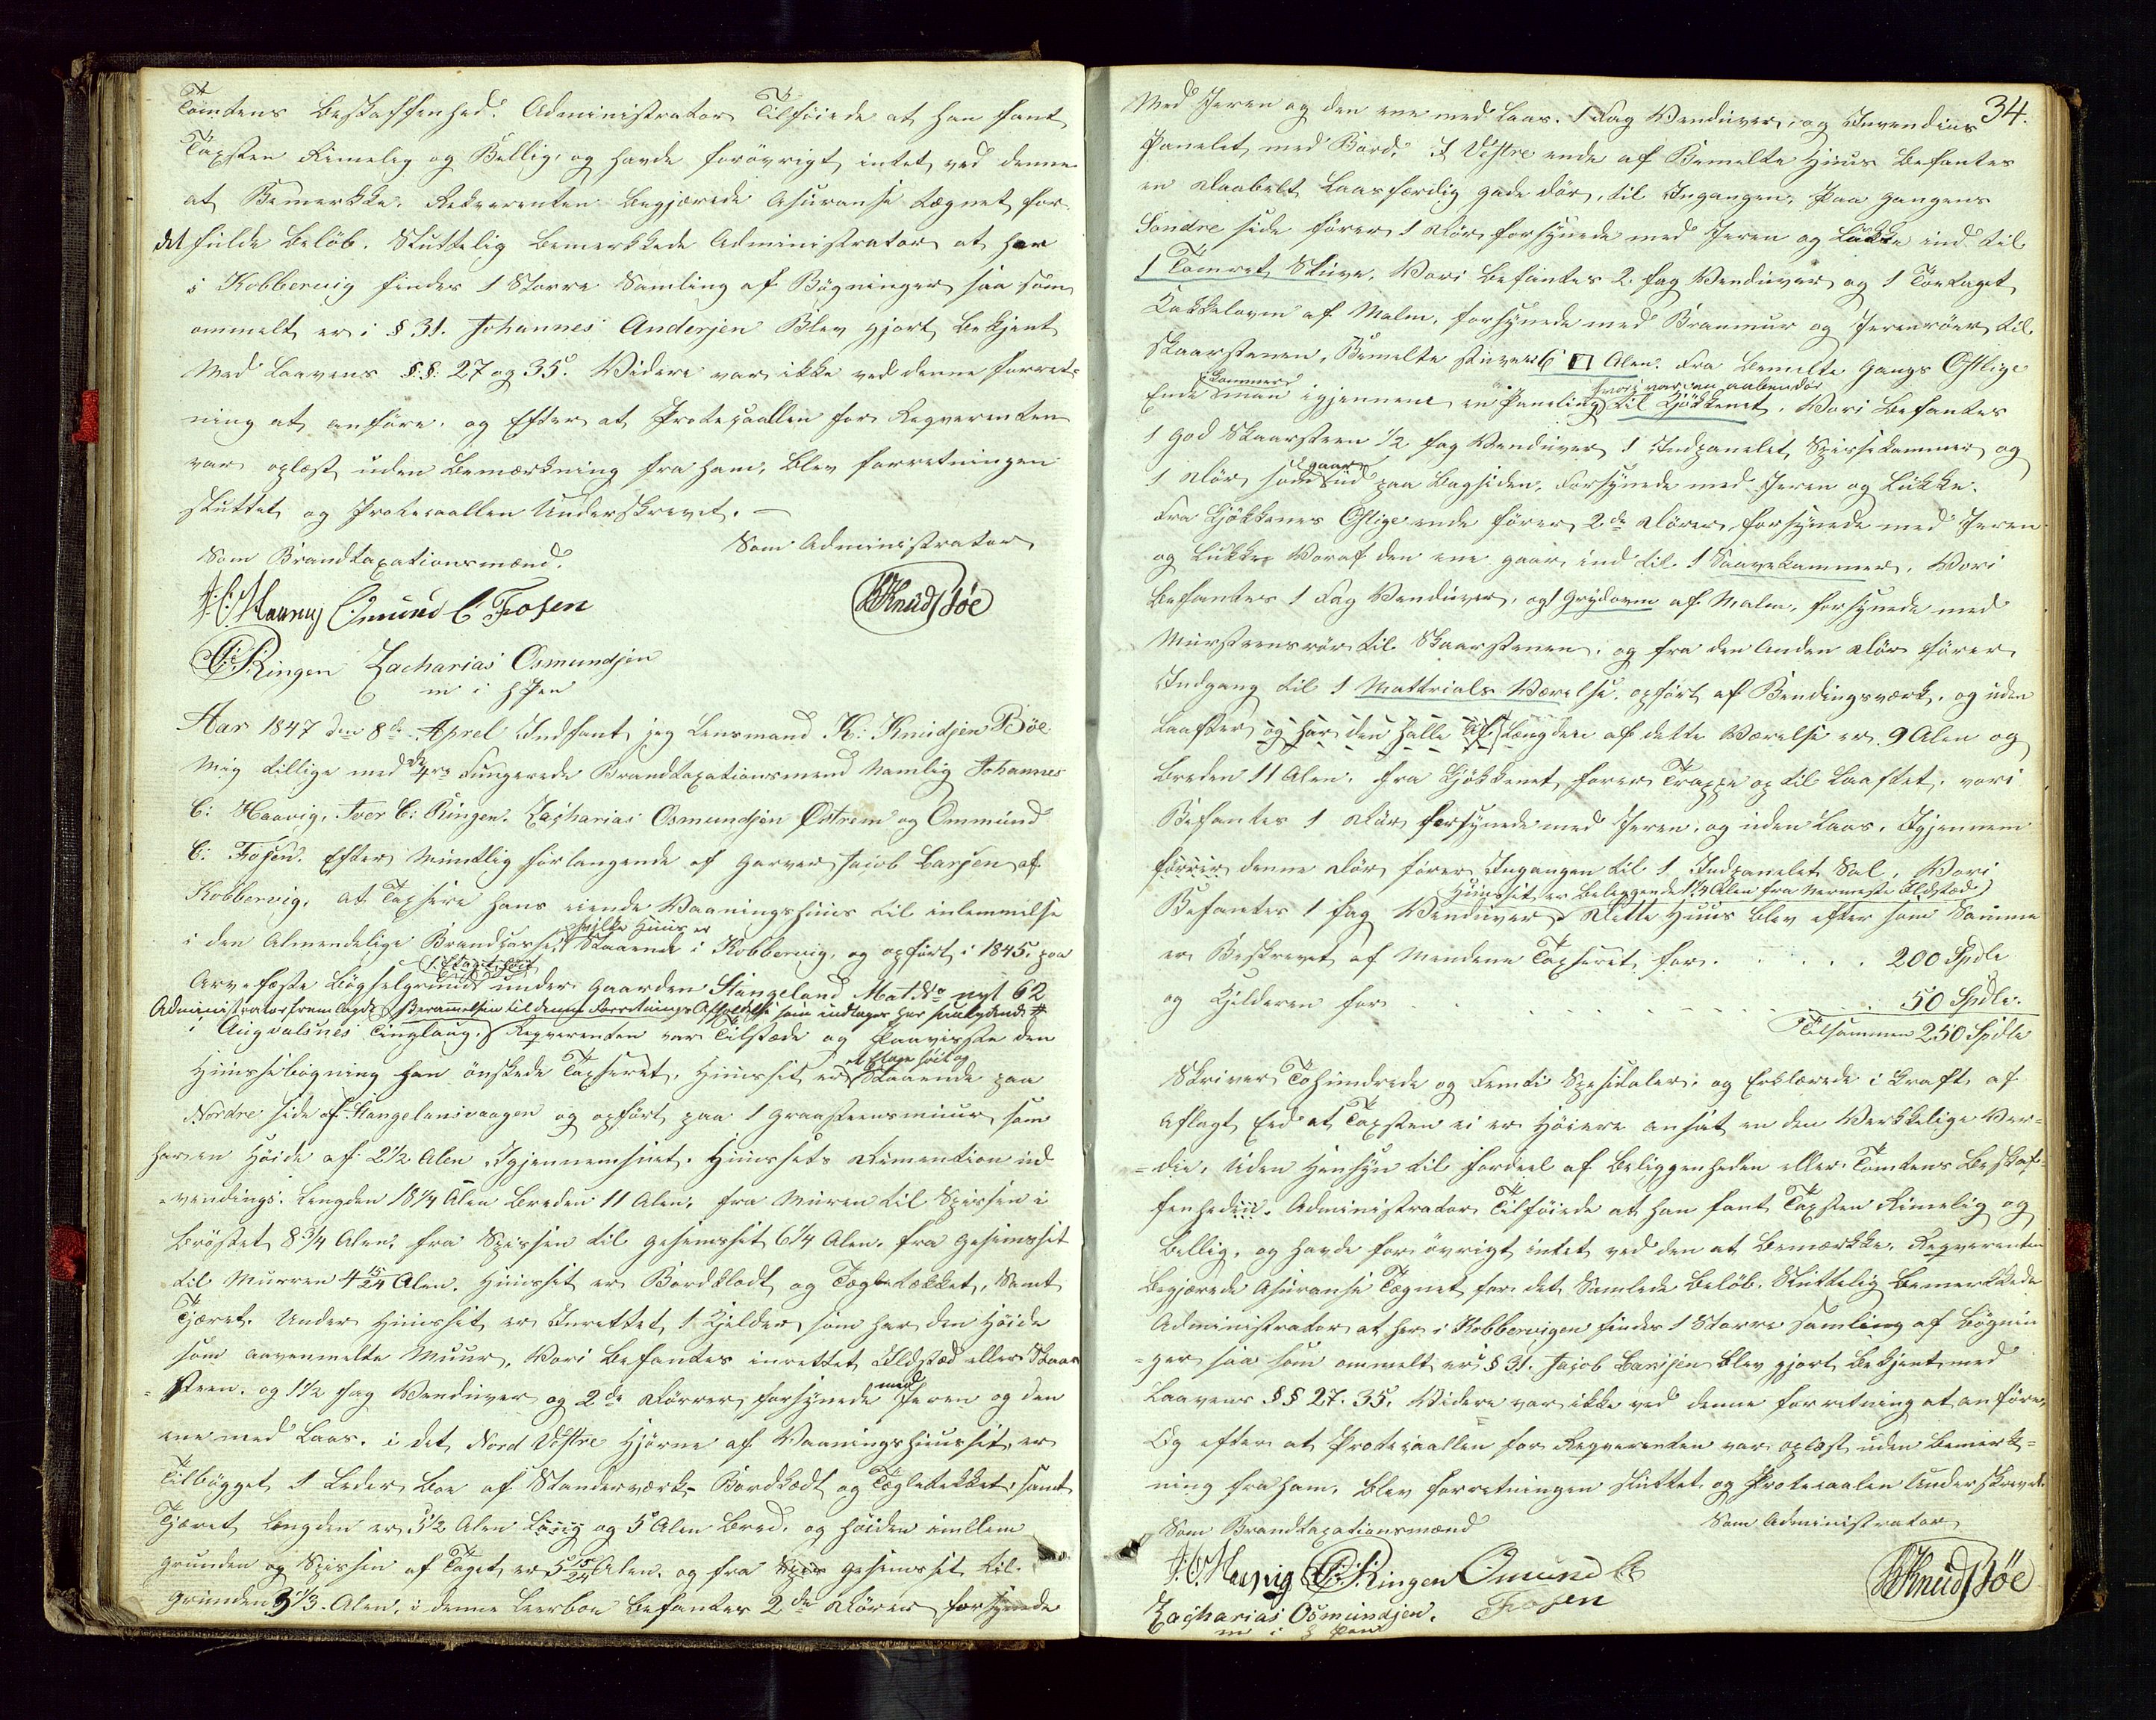 Tomtens Beskaffenhed. Administrator Tilföiede at han fant
Taxsten Rimelig og Bellig, og havde forövrigt intet ved denne
at Bemerkke. Rekverenten begjærede Asuranse tegnet for
det fulde Belöb. Sluttelig bemerkkede Administrator at her
i Kobbervig findes 1 Storre Samling af Bögninger saa som
ommelt er i § 31. Johannes Andersen Blev gjort bekjent
Med Laavens §.§: 27 og 35. Videre var ikke ved denne forret-
ning at anföre. og Efter at Protecaallen for Reqverenten
var oplæst uden Bemærkning fra ham, blev forretningen
sluttet og Protecaallen Underskrevet. —
Som Brandtaxationsmænd. Som Administrator
J. C. Haavig Omund C Fosen KKnudsBöe
I C Ringen Zacharias Osmundsen
m i h Pen
Aar 1847 den 8de Aprel Indfant jeg Lensmand K: Knudsen Böe
Mig tillige med de 4re Fungerede Brandtaxationsmend Namlig Johannes
C: Haavig, Iver C: Ringen. Zacharias Osmundsen Østrem og Ommund
C: Fosen. Efter Mundtlig forlangende af Garver Jacob Larsen af
Kobbervig, at Taxsere hans eiende Vaaningshuus til inlemmelse
i den Almendelige Brandcasse, hvilke Huus er Staaende i Kobbervig, og opfört i 1845. paa
1 Etage höit
Arvefæste Bögselgrund under Gaarden Stangeland Mat. No nyt 62
Administrator fremlagde Berammelsen til denne Forretnings Afholdelse som indtages her saalydende #
i Augvalsnes Tinglaug. Reqverenten var Tilstæde og Paaviste den
Huusebögning han önskede Taxseret. Huuset er et Etage höit og Staaende paa
Nordre side af Stangelansvaagen og opfört paa 1 Graasteensmuur, som
har en Höide af 2 1/2 Alen Igjennemsnit. Huusets Dimention ud
-vendings. Lengden 18 1/4 Alen Breden 11 Alen, fra Muren til Spissen i
Bröstet 8 3/4 Alen, fra Spissen til Gesimset 6 1/4 Alen. fra Gesimset
til Murren 4 15/24 Alen. Huuset er Bordklædt og Tægletækket, Samt
Tjæret. Under Huuset er Inrettet 1 Kjelder som har den Höide
som aavenmelte Muur, Vori befantes inrettet Ildsted eller Skaar
-steen. og 1 1/2 fag Venduver og 2de Dörrer forsynede med Jeren og den
ene med Laas. i det Nord Vestre Hjörne af Vaaningshuuset er
Tilbögget 1 Leder Boe af Standerværk- Bordklædt og Tægletekket, samt
Tjæret Lengden er 5 1/2 Alen Lang og 5 Alen bred. og höiden imellem
grunden og Spissen af Taget er 5 15/24 Alen. og fra Gesimset til
Grunden 3 1/3 Alen, i denne Leerboe befantes 2de Dörer forsynede
34.
Med Jeren og den ene med Laas. 1 Fag Venduver, og Invendius
Panelet med Bord. I Vestre ende af Bemelte Huus befantes
en Daabelt Laasfærdig gade dör, til Ingangen, Paa Gangens
Söndre side förer 1 Dör forsynede med Jeren og Lukke ind til
1 Tömret Stuve, Vori befantes 2 fag Venduver og 1 Toetaget
Kakkelovn af Malm, forsynede med Branmur og Jerenröer til
Skaarstenen, Bemelte Stuve 6 □ Alen. Fra Bemelte Gangs Östlige
Ende kommer man igjennem en Paneling hvori var en aaben dör til Kjökkenet, Vori befantes
1 God Skaarsteen 1/2 fag Venduver 1 Indpanelet Spissekammer og
1 Dör som gaar ud paa Bagsiden, Forsynede med Jeren og Lukke.
Fra Kjökkenes Östlige ende förer 2de Dörer, forsynede med Jeren
og Lukke, Voraf den ene gaar ind til 1 Saavekammer, Vori
Befantes 1 Fag Venduver, og 1 Grydovn af Malm, forsynede med
Mursteensrör til Skaarstenen, og fra den Anden Dör förer
Indgang til 1 Mattrials Værelse, opfört af Bendingsværk, og uden
Laaster og har den halle Længden af dette Værelse er 9 Alen og
Breden 11 Alen. Fra Kjökkenet forer Trappe op til Laaftet, vori
Befantes 1 Dör forsynede med Jeren, og uden Laas. Igjennem
förrer denne Dör förer Ingangen til 1 Indpanelet Sal, Vori
Huuset er Beleggende 1 1/4 Alen fra nermeste Ildsted
Befantes 1 fag Venduver. Dette Huus blev efter som Samme
er Beskrevet af Mendene Taxseret for . . . . . 200 Spdle
og Kjelderen for . . . . . 50 Spdle.
Tilsammen 250 Spdle
Skriver Tohundrede og Femti Spesidaler. og Erklærede i Kraft af
Aflagt Eed at Taxsten ei er Höiere ansat en den Verkkelige Ver-
-die. Uden Hensyn til fordeel af Beliggenheden eller Tomtens Beskaf-
fenheden. Administrator Tilföiede at han fant Taxsten Rimelig og
Bellig, og havde for övrigt intet ved den at Bemærkke. Reqverenten
begjærede Asuranse Tegnet for det Samlede Belöb. Sluttelig Bemerkkede
Administrator at her i Kobbervigen findes 1 Storre Samling af Bögnin
-ger saa som ommelt er i § 31. Jacob Larsen blev gjort Bekjent med
Laavens §§ 27. 35. Videre var ikke ved denne forretning at anföre,
Og efter at Protecaallen for Reqverenten var oplæst uden Bemerk-
ning fra ham, blev forretningen sluttet og Protecaalen Underskrevet.
Som Brandtaxationsmænd Som Administrator
J. C. Haavig I C Ringen Omund C
Fosen KKnudsBöe
Zacharias Osmundsen.
m i h Pen